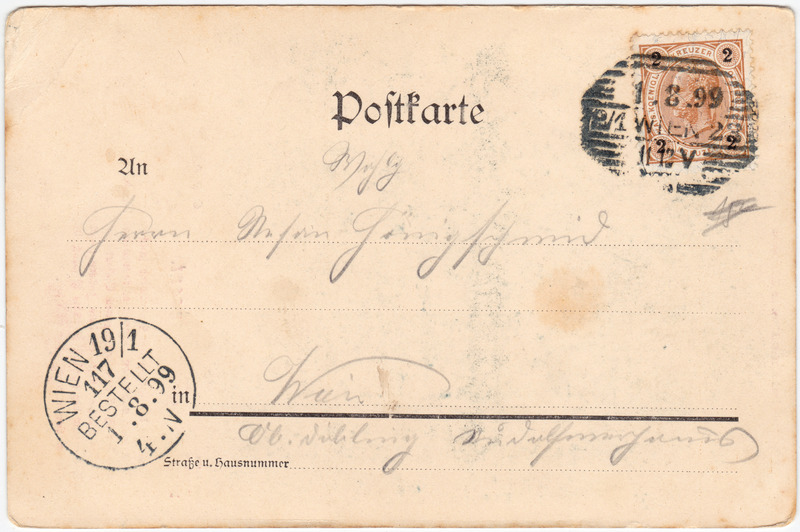 2 KREUZER 2
1.8.99
9/1 WIEN 2
11.V
2 2
Postkarte
An
Herrn Stefan Königschmid
WIEN 19/1
117
BESTELLT
1.8.99
4.N
in Wien
Ob. Döbling Rudolfinerhaus
Straße u. Hausnummer